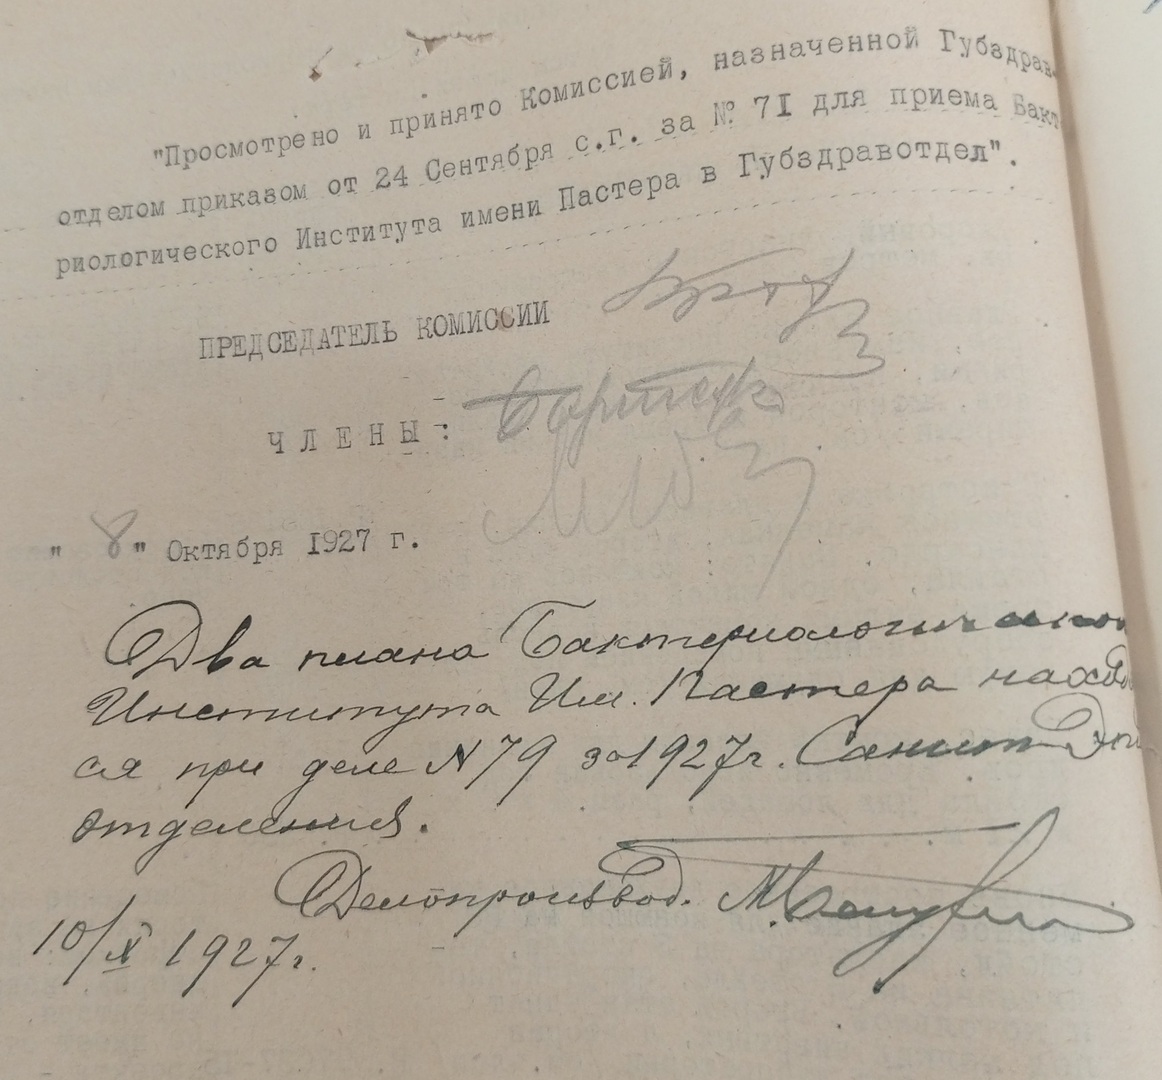 "Просмотрено и принято Комиссией, назначенной Губздрав-
отделом приказом от 24 Сентября с.г. за № 71 для приема Бакте
риологического Института имени Пастера в Губздравотдел".
ПРЕДСЕДАТЕЛЬ КОМИССИИ
ЧЛЕНЫ:
"8" Октября 1927 г.
Два плана Бактериологическ
Института Им. Пастера находят
ся при деле N 79 за 1927 г. Санит Эпи
отделения.
Делопроизвод.
10/X 1927 г.